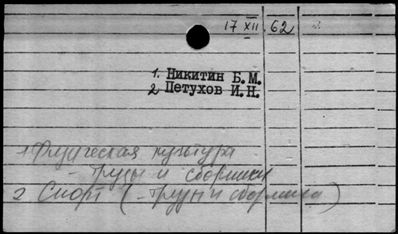 17 XII 62
1. Никитин Б.М.
2 Петухов И.Н.
1 Физическая культура
- труды и сборники
2 Спорт (- труды и сборники)